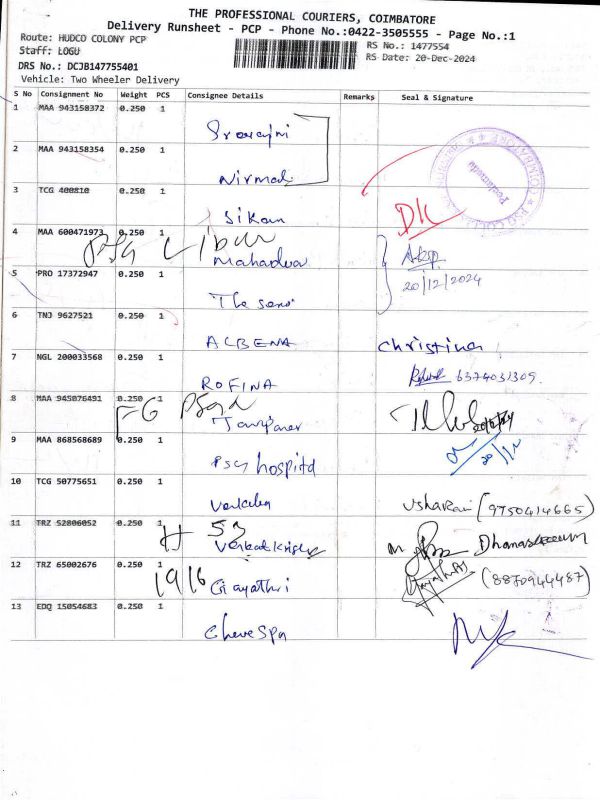 THE PROFESSIONAL COURIERS, COIMBATORE
Delivery Runsheet - PCP - Phone No.:0422-3505555 - Page No.:1
Route: HUDCO COLONY PCP
RS No.: 1477554
Staff: LOGU
RS Date: 20-Dec-2024
DRS No.: DCJB147755401
Vehicle: Two Wheeler Delivery
S No Consignment No Weight PCS Consignee Details Remarks Seal & Signature
1 MAA 943158372 0.250 1
2 MAA 943158354 0.250 1 Nirmal
3 TCG 400810 0.250 1 Sikan
DK
4 MAA 600471973 0.250 1 Mahadeva
20/12/2024
5 PRO 17372947 0.250 1 The sans
6 TNJ 9627521 0.250 1 ALBENA Christina
7 NGL 200033568 0.250 1 ROFINA 6374031309
8 MAA 945076491 0.250 1
FG
9 MAA 868568689 0.250 1 PSG hospital
20/12
10 TCG 50775651 0.250 1 Usharani (9750414665)
11 TRZ 52806052 0.250 1
H 53
12 TRZ 65002676 0.250 1 Gayathri (8870944487)
1916
13 EDQ 15054683 0.250 1